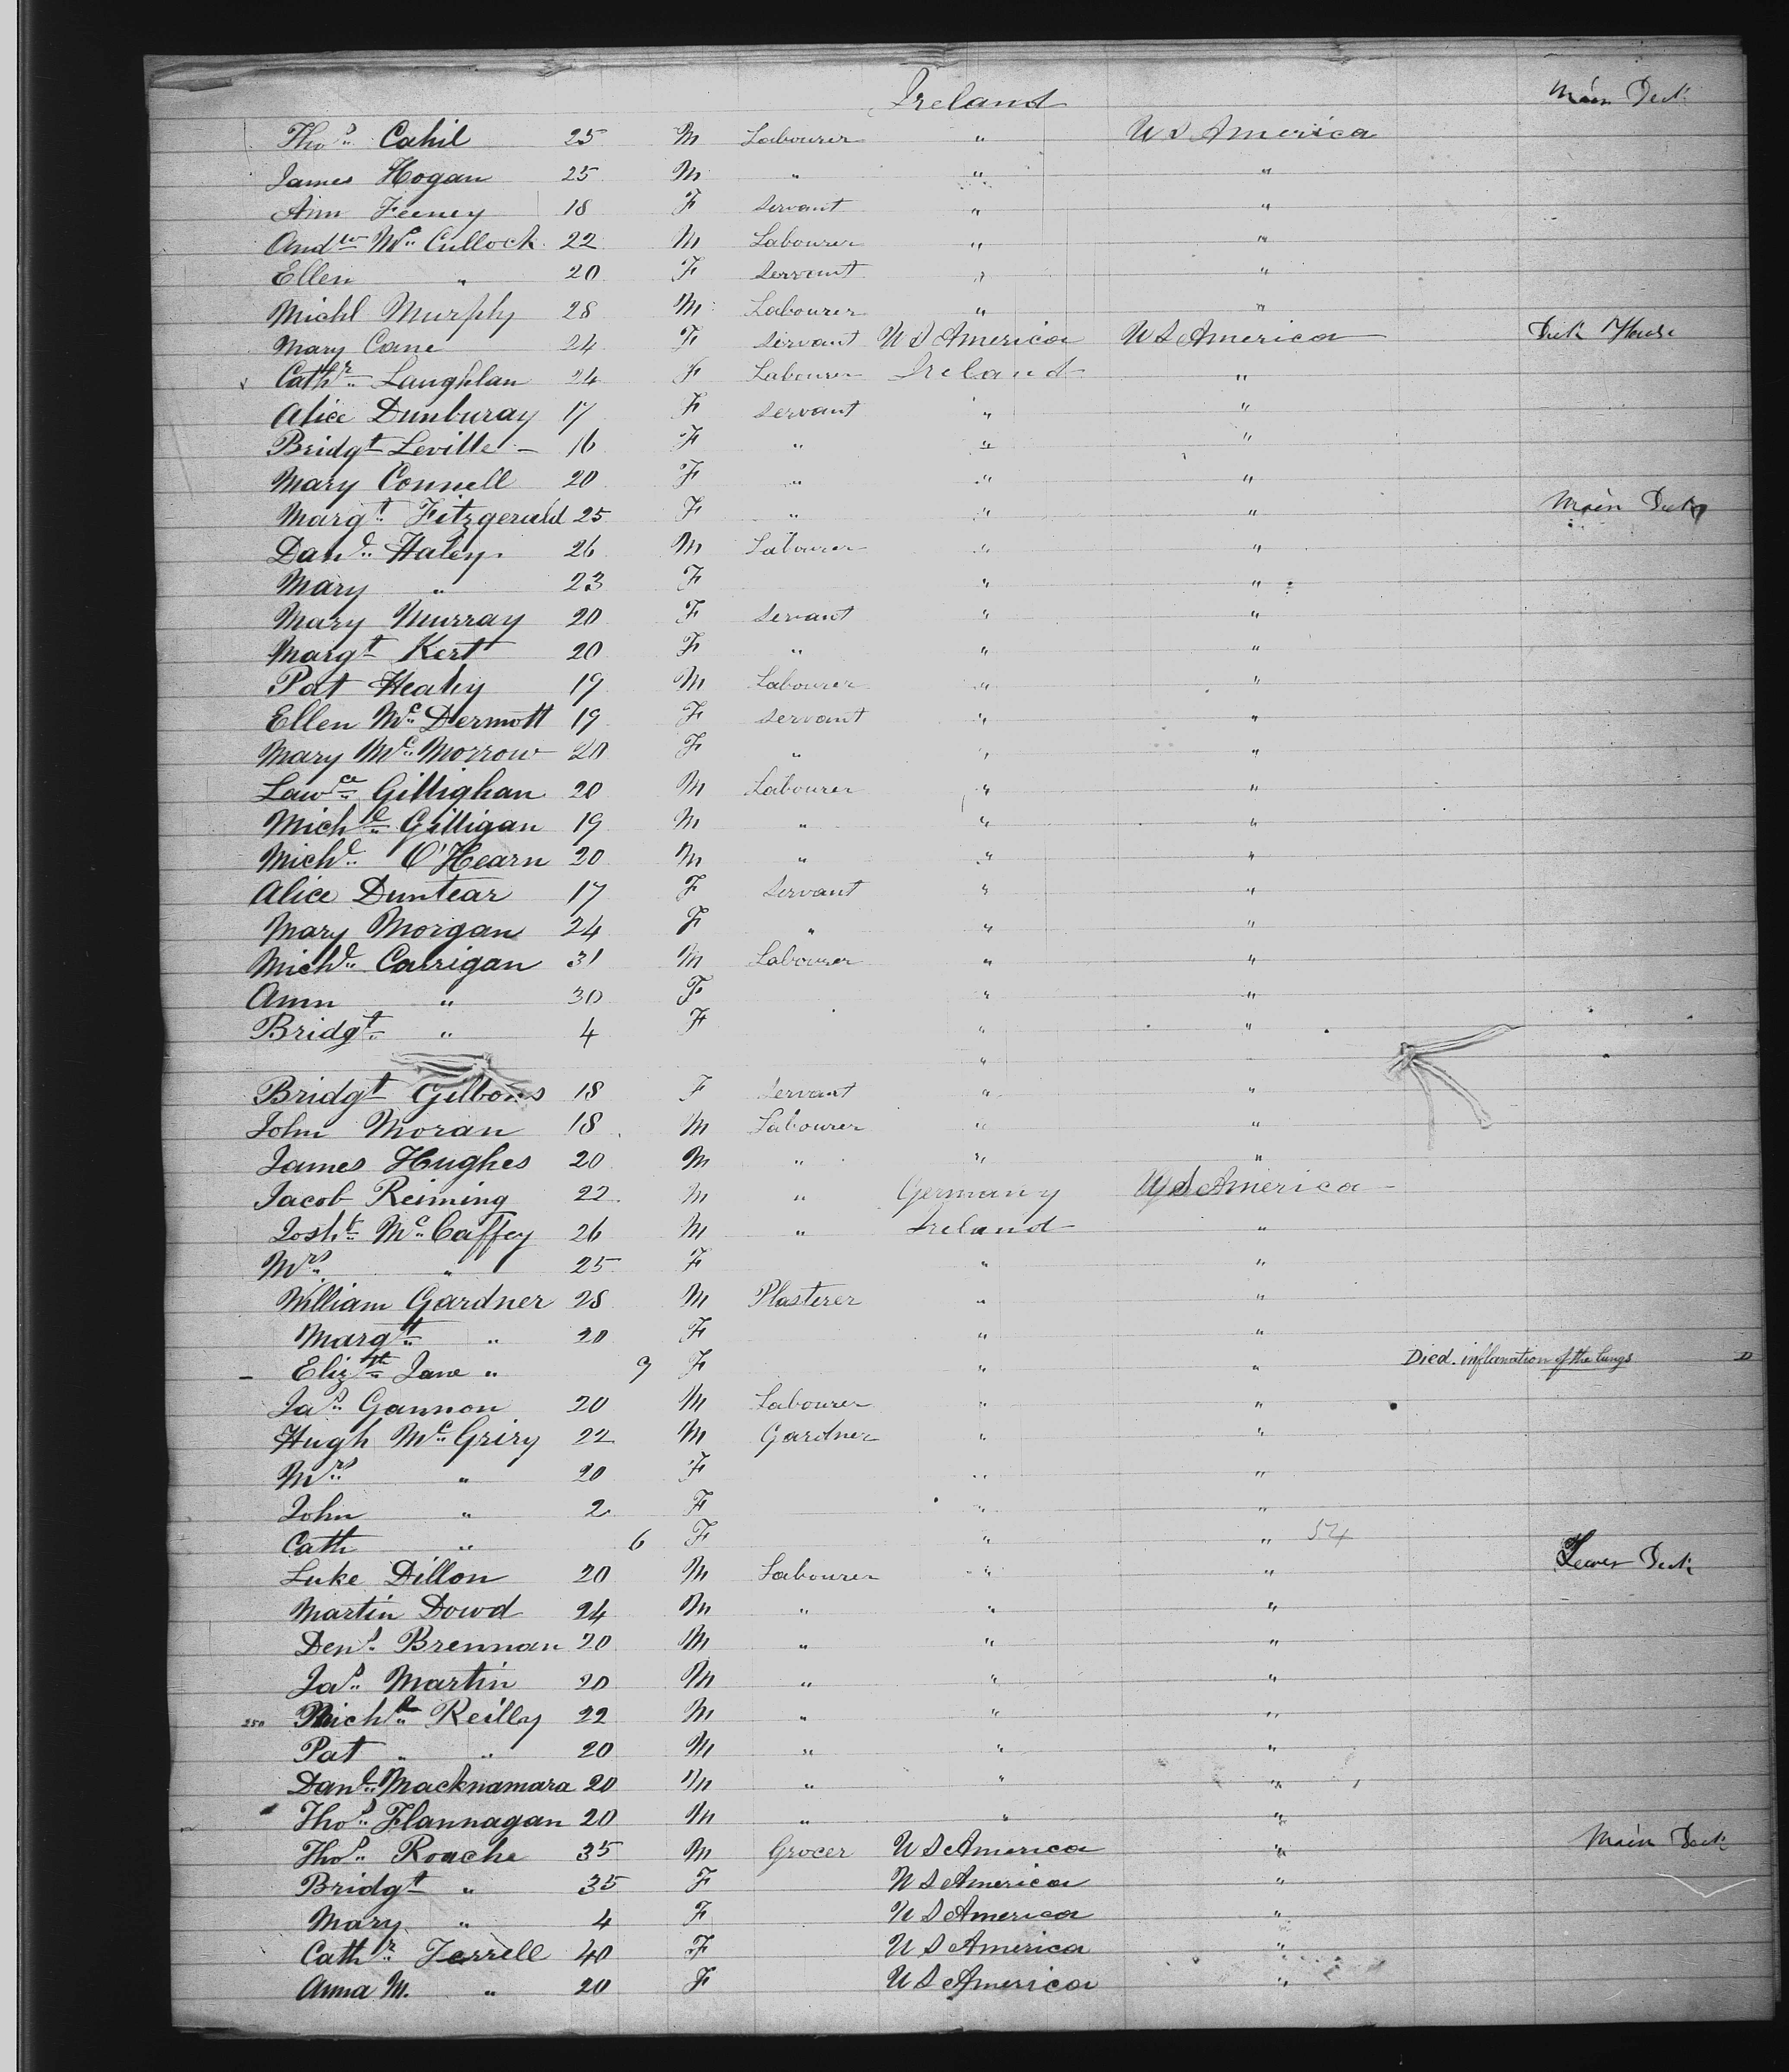 Ireland Main Deck
Thos. Cahil 25 M Labourer " U S America
James Hogan 25 M " " "
Ann Feeney 18 F Servant " "
Andw Mc Cullock 22 M Labourer " "
Ellen " 20 F Servant " "
Michl Murphy 28 M Labourer " "
Mary Cane 24 F Servant U S America U S America Deck House
Cathr Laughlan 24 F Labourer Ireland "
Alice Dunburay 17 F Servant " "
Bridgt Leville 16 F " " "
Mary Connell 20 F " " "
Margt Fitzgerald 25 F " " " Main Deck
Danl Haley 26 M Labourer " "
Mary " 23 F " "
Mary Murray 20 F Servant " "
Margt Kert 20 F " " "
Pat Heahy 19 M Labourer " "
Ellen Mc Dermott 19 F Servant " "
Mary Mc Morrow 20 F " " "
Lawce Gillighan 20 M Labourer " "
Michl Gilligan 19 M " " "
Michl O'Hearn 20 M " " "
Alice Duntear 17 F Servant " "
Mary Morgan 24 F " " "
Michl Carrigan 31 M Labourer " "
Ann " 30 F " "
Bridgt " 4 F " "
"
Bridgt Gilbons 18 F Servant " "
John Moran 18 M Labourer " "
James Hughes 20 M " " "
Jacob Reiming 22 M " Germany U S America
Josht Mc Caffey 26 M " Ireland "
Mrs " 25 F " "
William Gardner 28 M Plasterer " "
Margt " 20 F " "
Elizth Jane " 9 F " " Died inflamation of the lungs D
Jas Gannon 20 M Labourer " "
Hugh Mc Griry 22 M Gardner " "
Mrs " 20 F " "
John " 2 F " "
Cath " 6 F " " 54
Luke Dillon 20 M Labourer " " Lower Deck
Martin Dowd 24 M " " "
Dens Brennan 20 M " " "
Jas Martin 20 M " " "
250 Michl Reilly 22 M " " "
Pat " " 20 M " " "
Danl Macknamara 20 M " " "
Thos Flannagan 20 M " " "
Thos Roache 35 M Grocer U S America " Main Deck
Bridgt " 35 F U S America "
Mary " 4 F U S America "
Cathr Terrell 40 F U S America "
Anna M. " 20 F U S America "